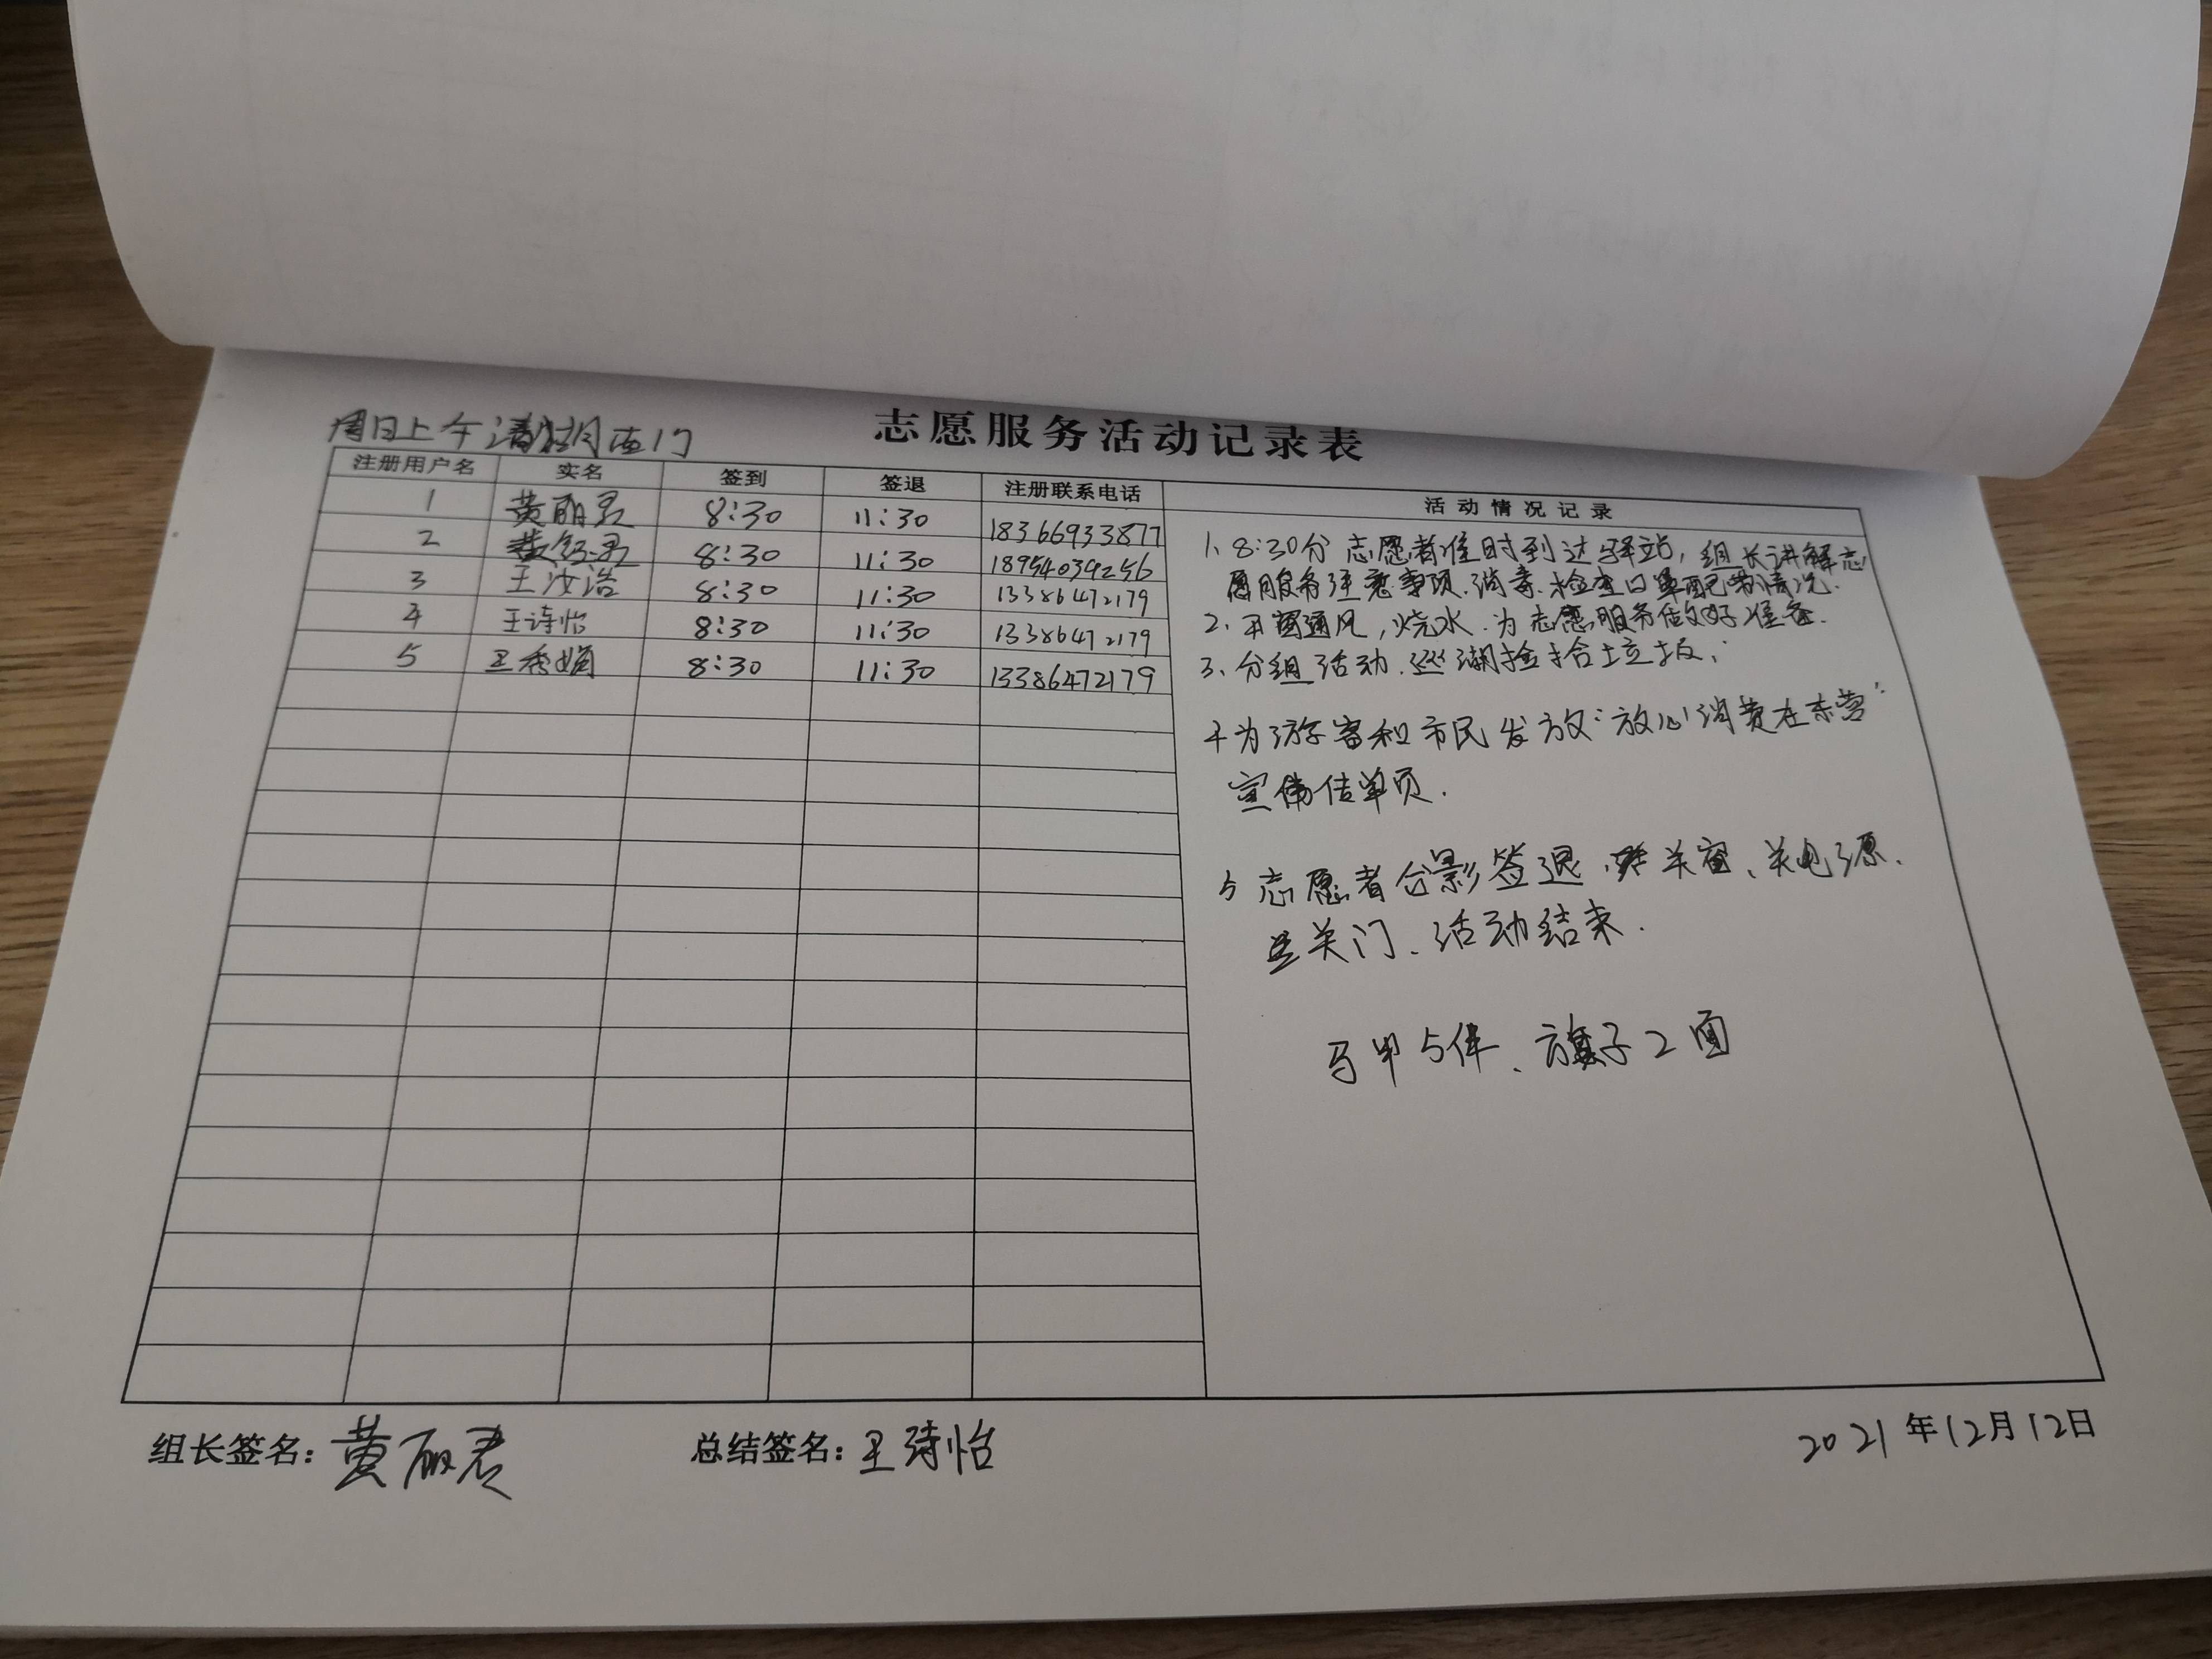 志愿服务活动记录表
周日上午清风湖西门
注册用户名 实名 签到 签退 注册联系电话 活动情况记录
1 黄丽君 8:30 11:30 18366933877
2 8:30 11:30 18954039256
3 王汝浩 8:30 11:30 13386472179
4 王诗怡 8:30 11:30 13386472179
5 王秀娟 8:30 11:30 13386472179
1、8:30分志愿者准时到达驿站,组长讲解志
愿服务注意事项.消毒.检查口罩配带情况.
2、开窗通风,烧水.为志愿服务做好准备.
3、分组活动.巡湖捡拾垃圾;
4为游客和市民发放“放心消费在东营”
宣传单页.
5志愿者合影签退,关窗、关电源、
关门、活动结束.
马甲5件、旗子2面
组长签名:黄丽君 总结签名:王诗怡 2021年12月12日